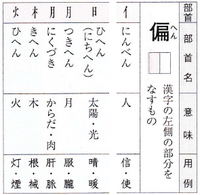 部首 部首名 意味 用例
へん
偏
漢字の左側の部分を
なすもの
亻 にんべん 人 信・使
日 ひへん
(にちへん) 太陽・光 晴・暖
月 つきへん 月 服・朧
月 にくづき からだ・肉 肝・脈
木 きへん 木 根・械
火 ひへん 火 灯・煙